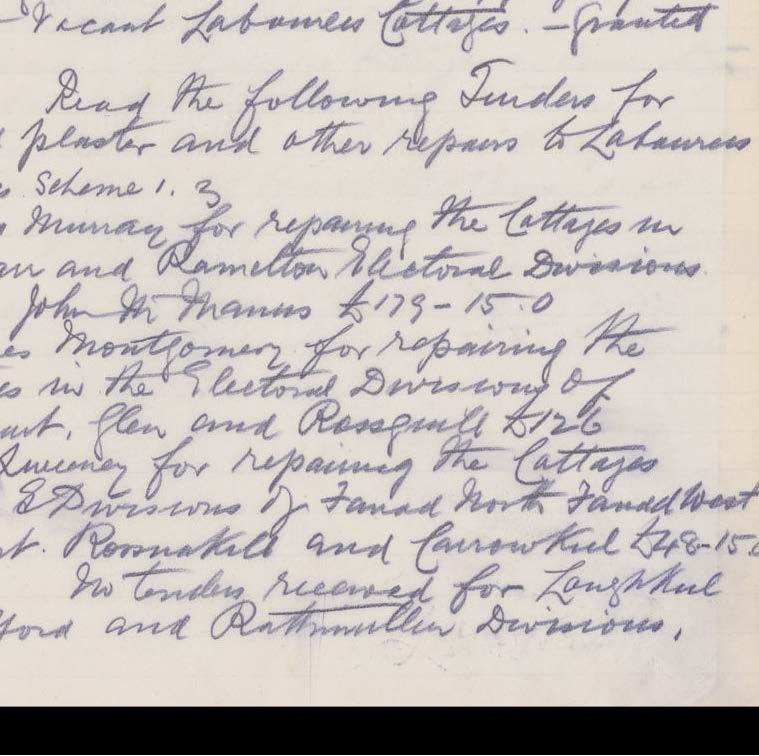 Vacant Labourers Cottages. – Granted
Read the following Tenders for
plaster and other repairs to Labourers
Scheme 1. 3
Murray for repairing the Cottages in
and Ramelton Electoral Divisions
John McManus £179-15.0
es Montgomery for repairing the
es in the Electoral Divisions of
Glen and Rossguill £126
Sweeney for repairing the Cottages
E Divisions of Fanad North Fanad West
Rossnakill and Carrowkeel £48-15.
No tenders received for Loughkeel
ford and Rathmullen Divisions.